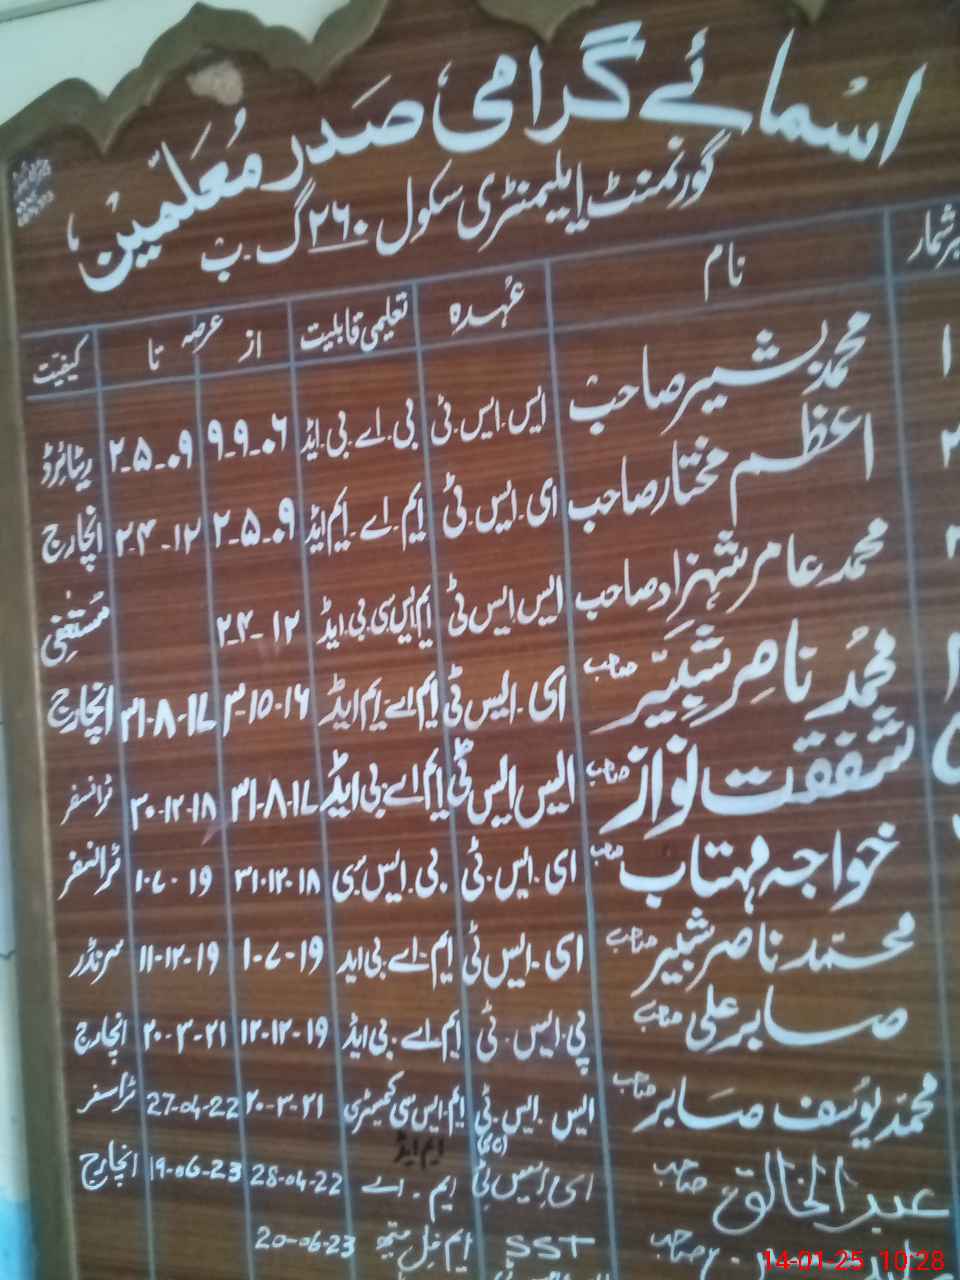 اسمائے گرامی صدر معلمین
گورنمنٹ ایلیمنٹری سکول ۲۶۰ گ.ب
نمبر شمار نام عہدہ تعلیمی قابلیت عرصہ از تا کیفیت
۱ محمد بشیر صاحب ایس.ایس.ٹی بی.اے.بی.ایڈ ۹-۹-۰۶ ۲-۵-۰۹ ریٹائرڈ
۲ اعظم مختار صاحب ای.ایس.ٹی ایم.اے.ایم ایڈ ۲-۵-۰۹ ۲-۴-۱۲ انچارج
۳ محمد عامر شہزاد صاحب ایس ایس ٹی ایم ایس سی بی.ایڈ ۲-۴-۱۲ مستعفی
محمد ناصر شبیر صاحب ای.ایس ٹی ایم اے.ایم ایڈ ۳-۱۵-۱۶ ۳۱-۸-۱۷ انچارج
شفقت نواز صاحب ایس ایس ٹی ایم اے بی ایڈ ۳۱-۸-۱۷ ۳۰-۱۲-۱۸ ٹرانسفر
خواجہ مہتاب صاحب ای.ایس.ٹی بی.ایس.سی ۳۱-۱۲-۱۸ ۱-۷-۱۹ ٹرانسفر
محمد ناصر شبیر صاحب ای.ایس ٹی ایم-اے-بی اید ۱-۷-۱۹ ۱۱-۱۲-۱۹ سرنڈر
صابر علی صاحب پی.ایس.ٹی ایم.اے.بی ایڈ ۱۲-۱۲-۱۹ ۲۰-۳-۲۱ انچارج
محمد یوسف صابر صاحب ایس.ایس.ٹی (SC) ایم.ایس سی کیمسٹری ۲۰-۳-۲۱ 27-04-22 ٹراسفر
ایم ایڈ
عبدالخالق صاحب ای ایس ٹی ایم.اے 28-04-22 19-06-23 انچارج
صاحب SST ایم فل میتھ 20-06-23
14-01-25 10:28